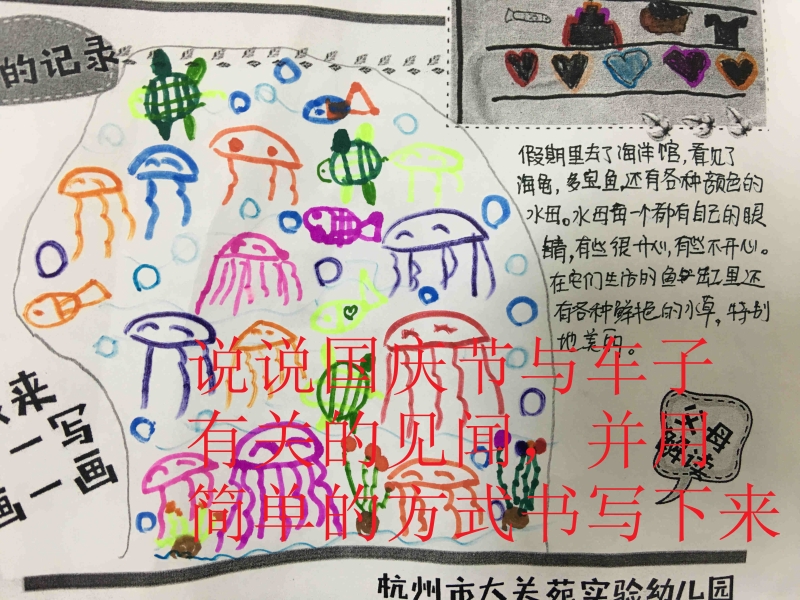 的记录
假期里去了海洋馆,看见了
海龟,多宝鱼,还有各种颜色的
水母。水母每一个都有自己的眼
睛,有些很开心,有些不开心。
在它们生活的鱼缸里还
有各种鲜艳的水草,特别
地美丽。
说说国庆节与车子
有关的见闻,并用
简单的方式书写下来
来
一写
画一画
杭州市大关苑实验幼儿园